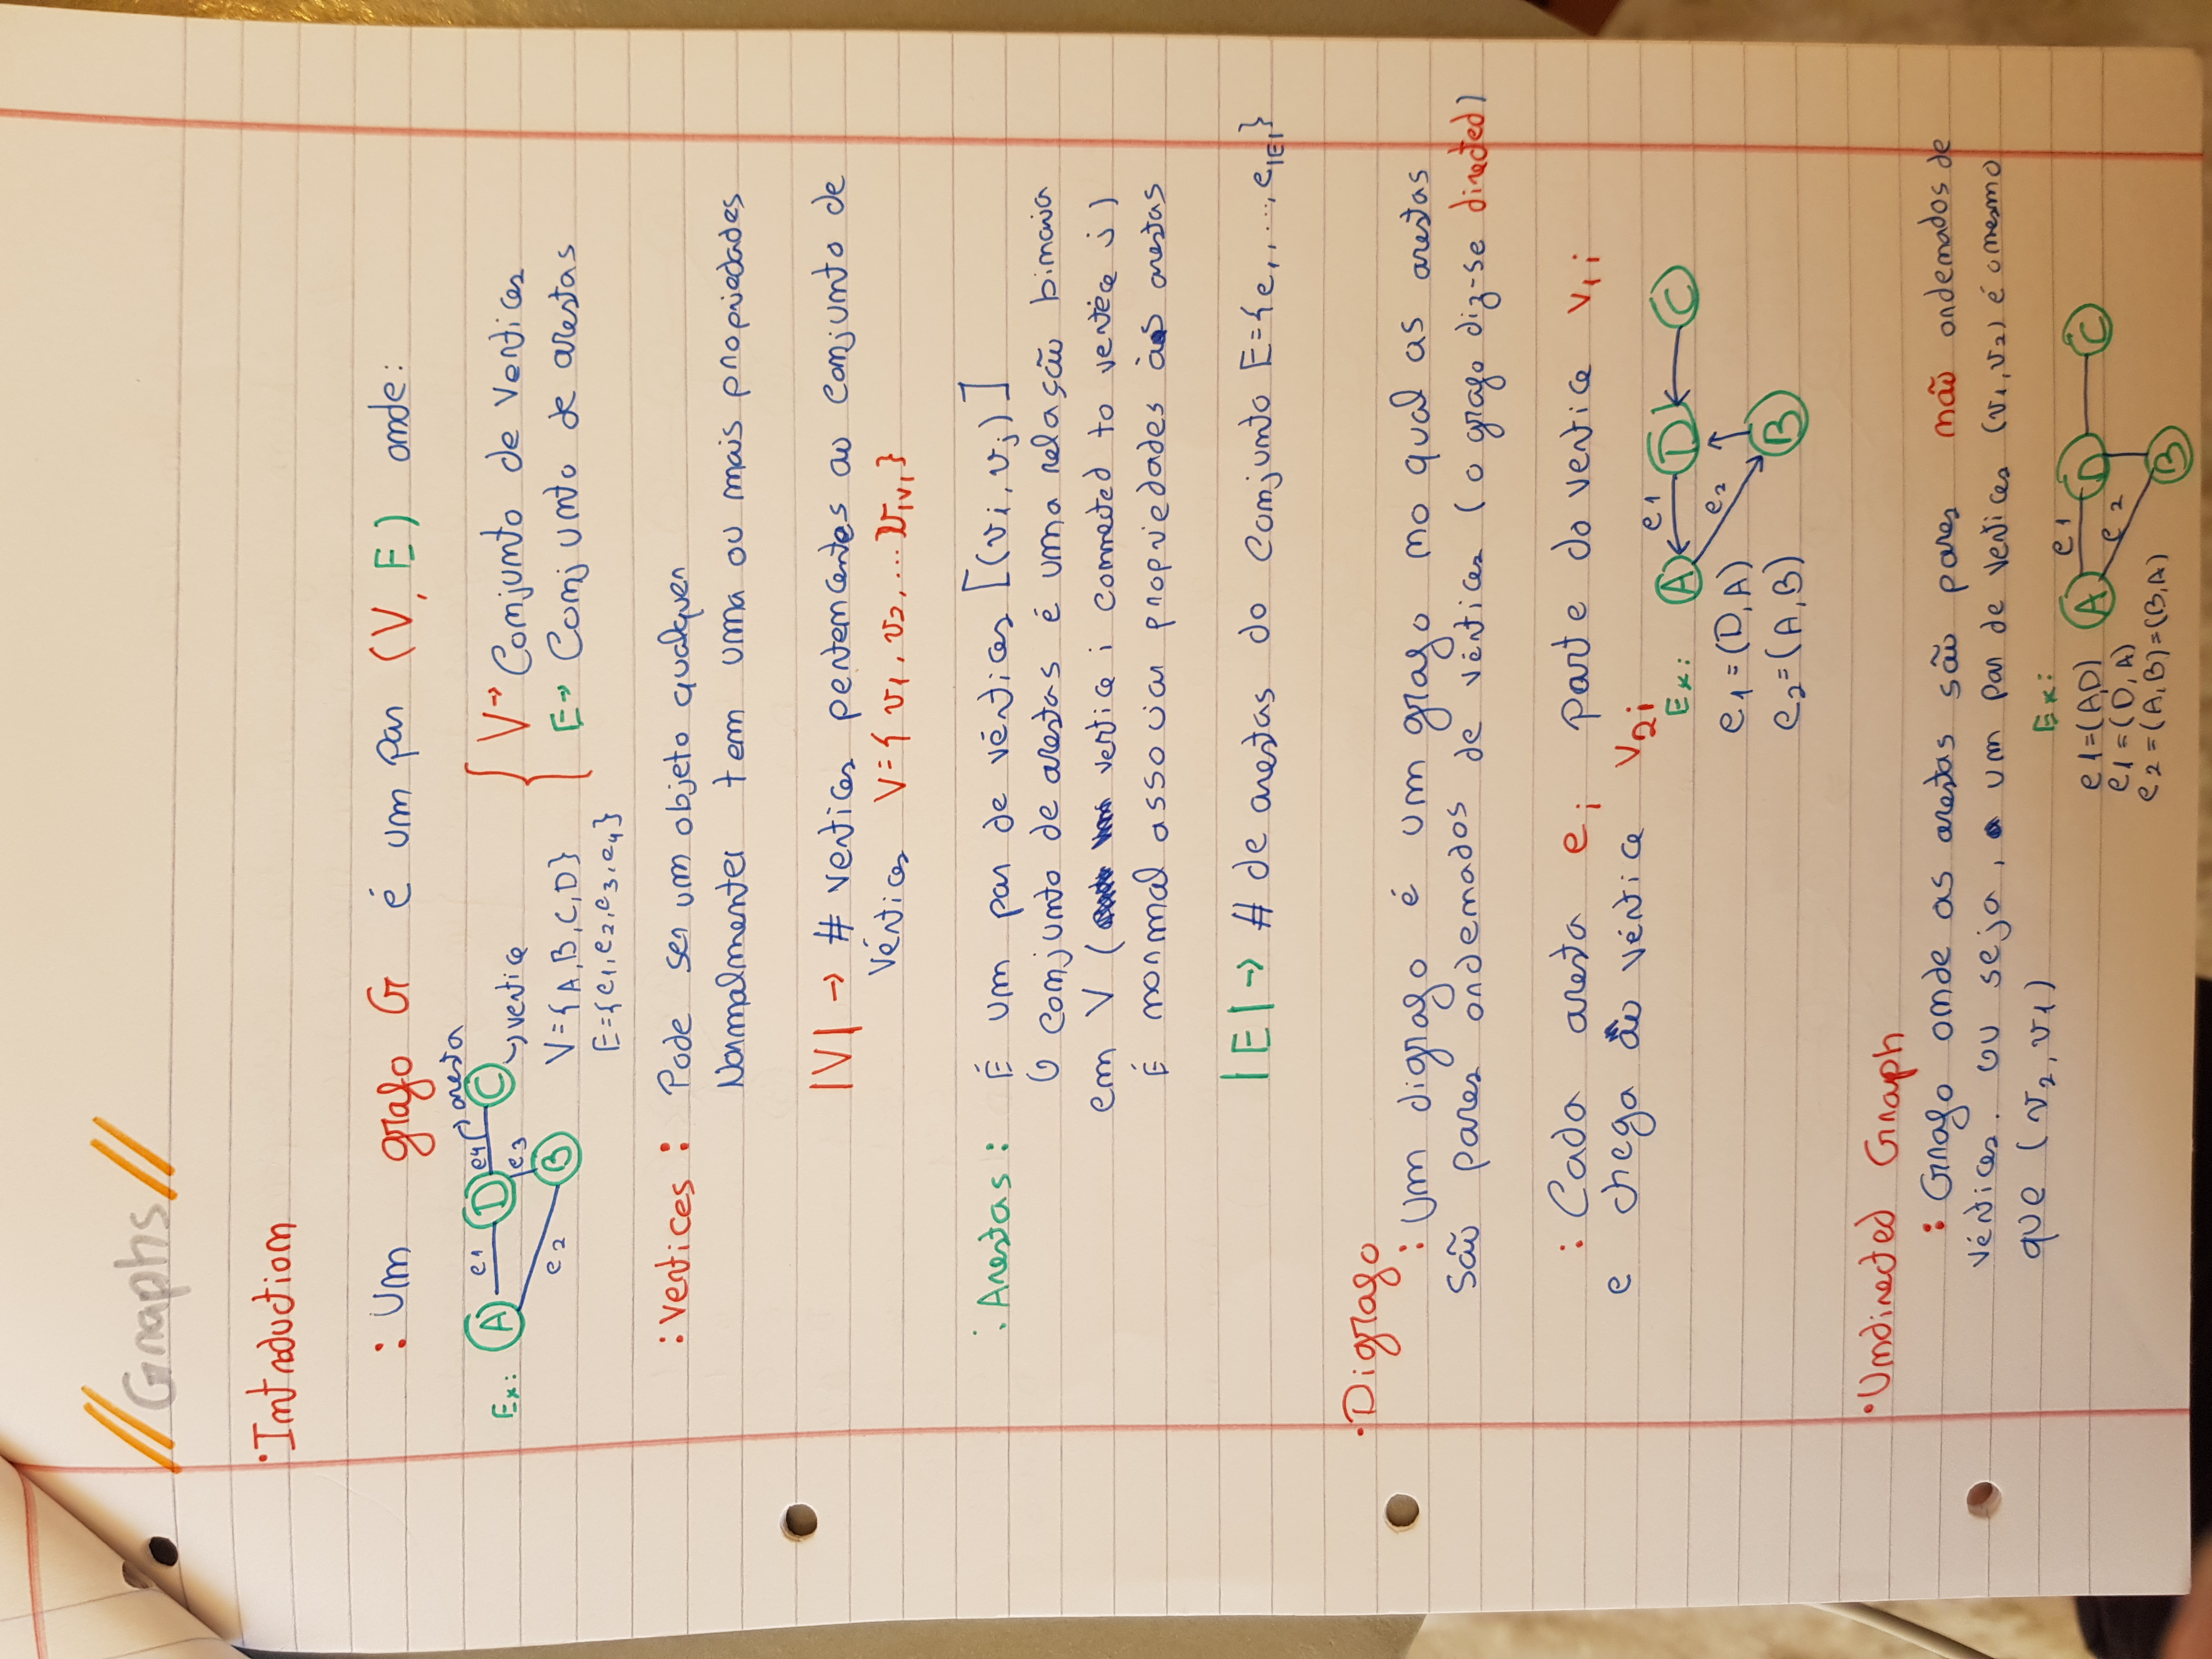 // Graphs //
· Introduction
: Um grafo G é um par (V, E) onde:
Ex: A e1 D e4 → aresta C → vertice
e2 e3 B
V={A,B,C,D}
E={e1,e2,e3,e4}
V → Conjunto de vertices
E → Conjunto de arestas
: Vertices : Pode ser um objeto qualquer
Normalmente tem uma ou mais propriedades
|V| → # vertices pertencentes ao conjunto de
vértices V={v1, v2, ... v|V|}
: Arestas : É um par de vértices [(vi, vj)]
O conjunto de arestas é uma relação binaria
em V (vertice i connected to vertice j)
É normal associar propriedades às arestas
|E| → # de arestas do conjunto E={e1, ..., e|E|}
· Digrafo
: Um digrafo é um grafo no qual as arestas
são pares ordenados de vértices (o grafo diz-se directed)
: Cada aresta ei parte do vertice v1i
e chega ao vértice v2i
Ex: A e1 D C
e1=(D,A) e2
e2=(A,B) B
· Undirected Graph
: Grafo onde as arestas são pares não ordenados de
vértices. ou seja, um par de vertices (v1,v2) é o mesmo
que (v2,v1)
Ex:
e1=(A,D) A e1 D C
e1=(D,A) e2
e2=(A,B)=(B,A) B